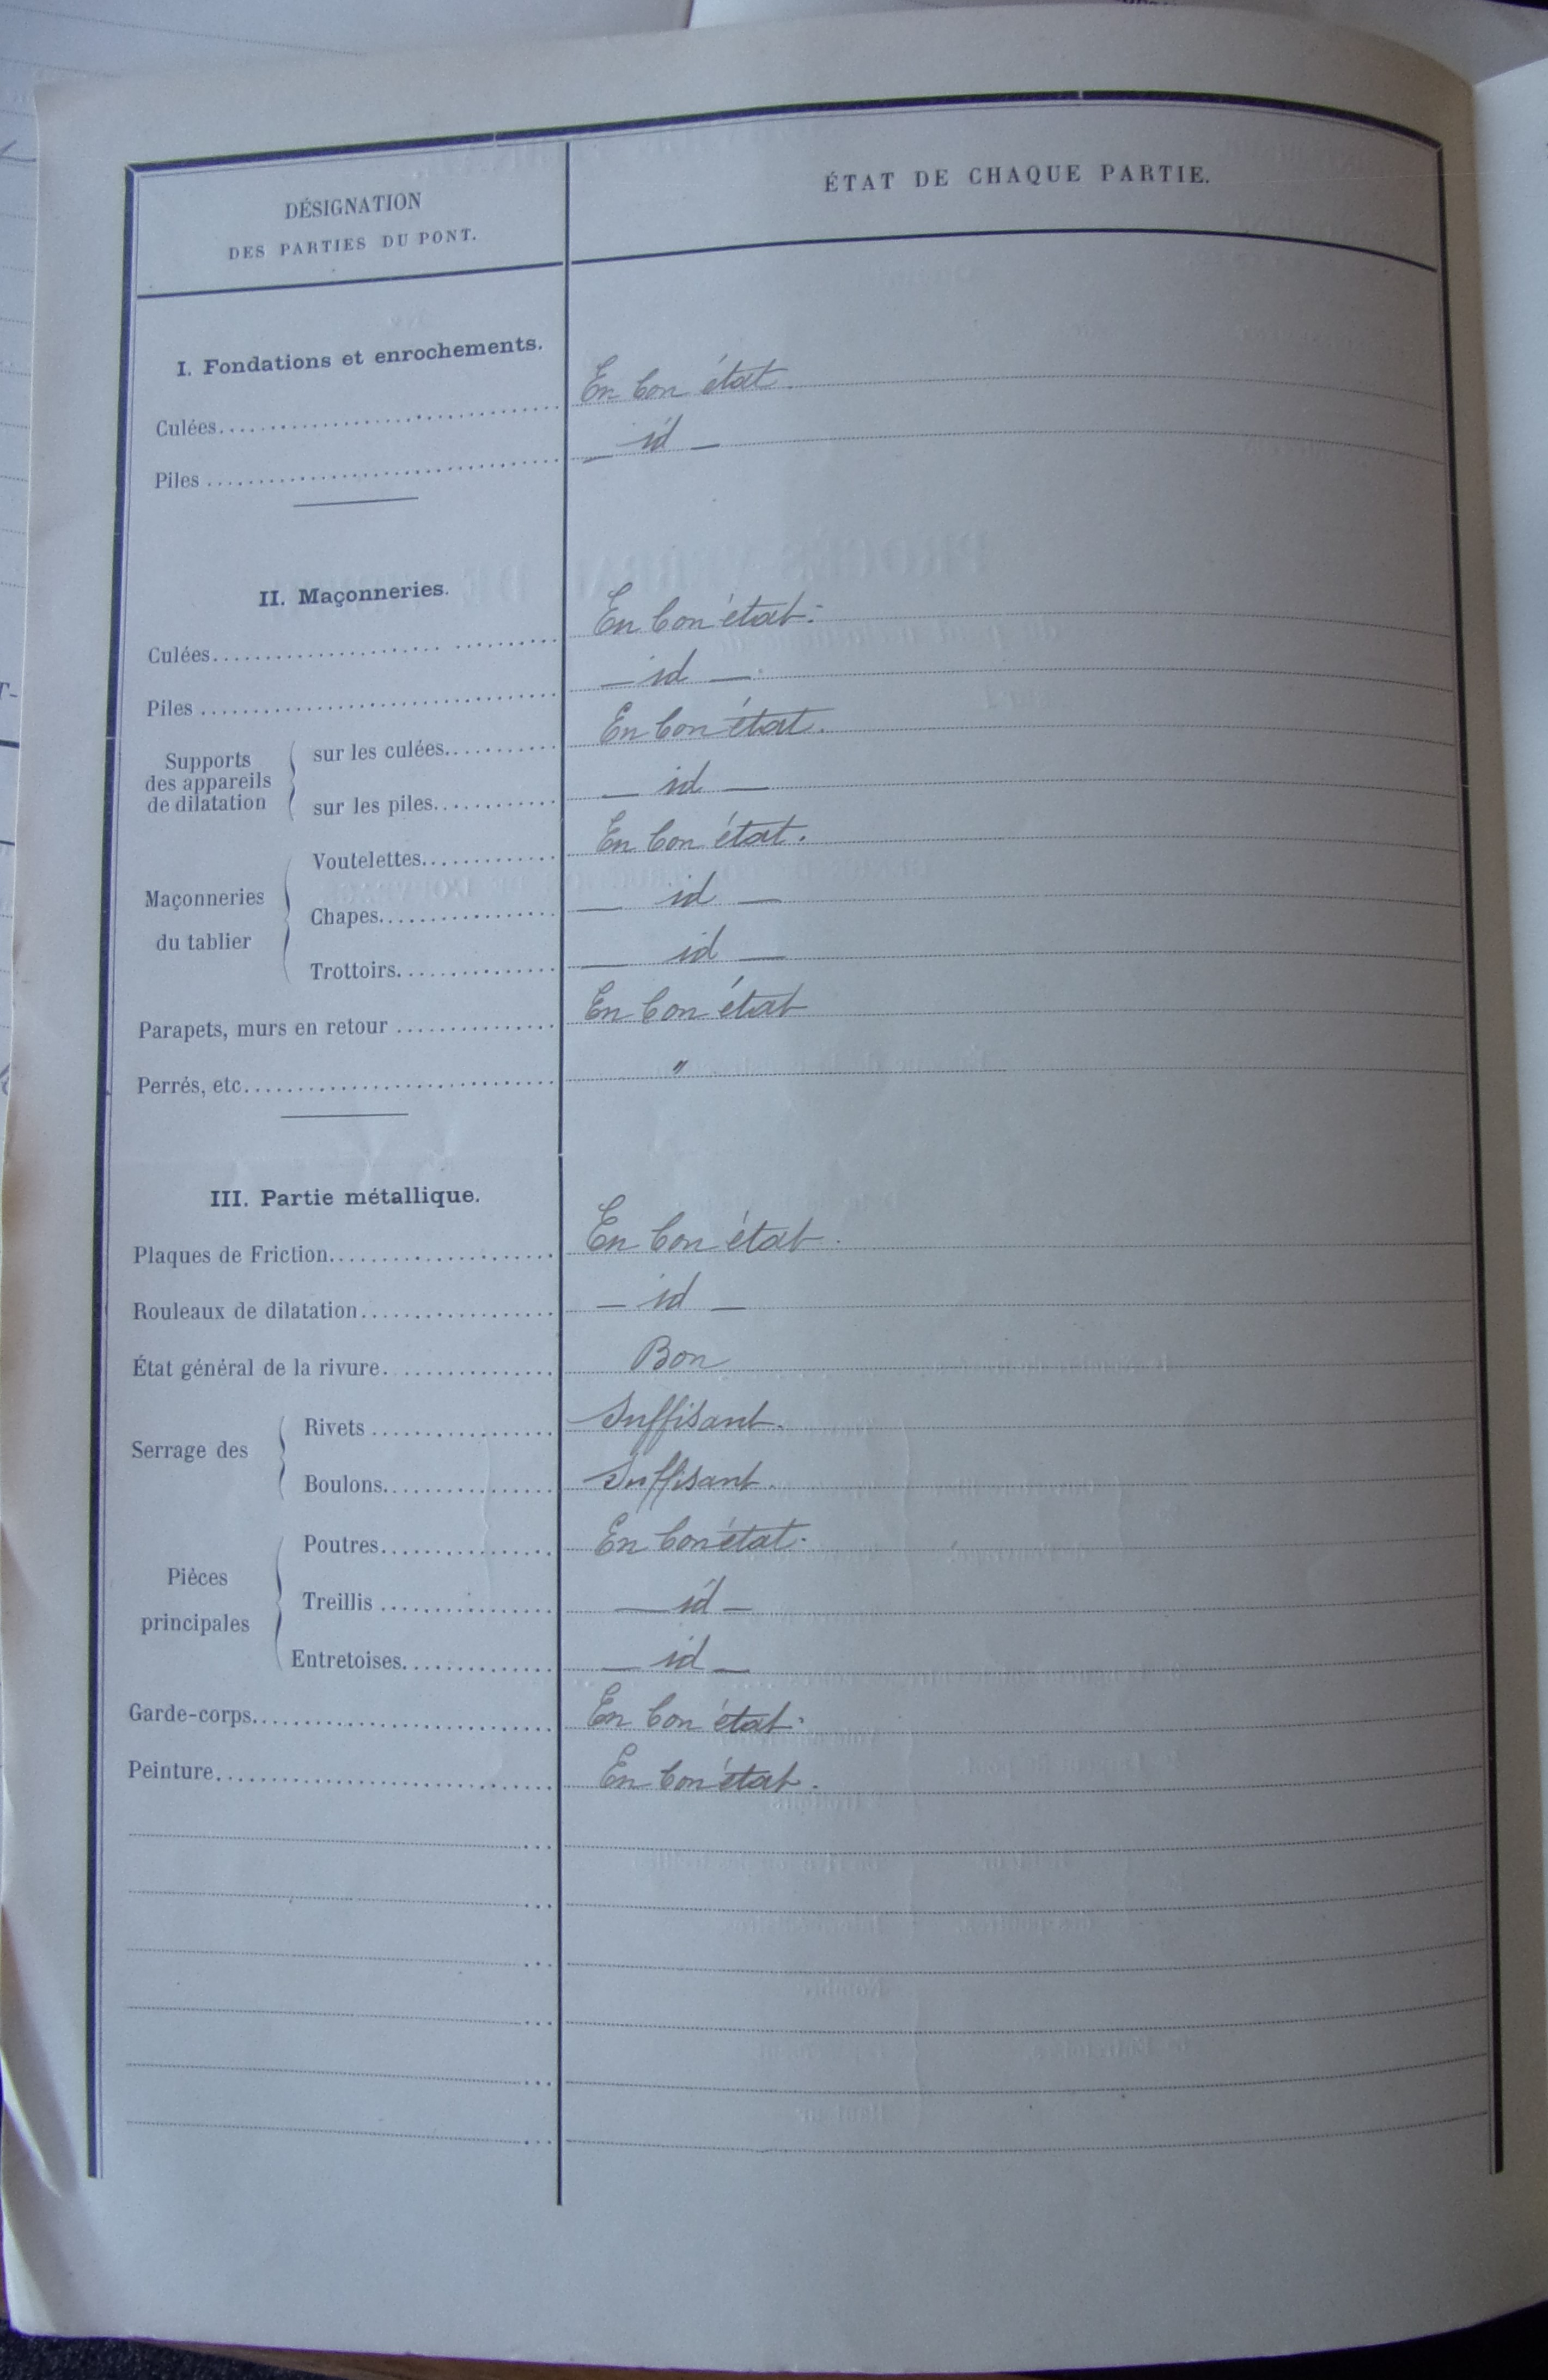 DÉSIGNATION
DES PARTIES DU PONT.
ÉTAT DE CHAQUE PARTIE.
I. Fondations et enrochements.
Culées. En bon état.
Piles — id —
II. Maçonneries.
Culées. En bon état.
Piles — id —
Supports des appareils de dilatation
sur les culées. En bon état.
sur les piles. — id —
Maçonneries du tablier
Voutelettes. En bon état.
Chapes. — id —
Trottoirs. — id —
Parapets, murs en retour En bon état
Perrés, etc. "
III. Partie métallique.
Plaques de Friction. En bon état.
Rouleaux de dilatation. — id —
État général de la rivure. Bon
Serrage des
Rivets Suffisant.
Boulons. Suffisant.
Pièces principales
Poutres. En bon état.
Treillis — id —
Entretoises. — id —
Garde-corps. En bon état.
Peinture. En bon état.